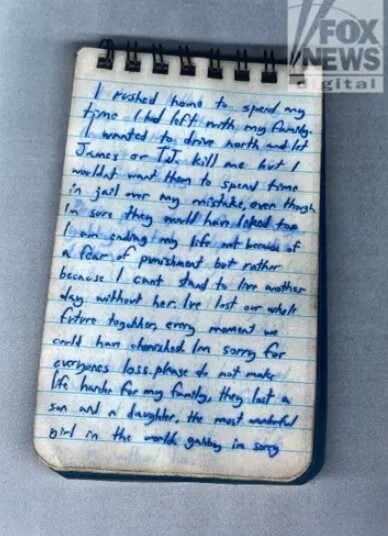 FOX
NEWS
digital
I rushed home to spend my
time I had left with my family.
I wanted to drive north and let
James or TJ kill me but I
wouldnt want them to spend time
in jail over my mistake, even though
im sure they would have liked too
I am ending my life not because of
a fear of punishment but rather
because I cant stand to live another
day without her. Ive lost our whole
future together, every moment we
could have cherished. Im sorry for
everyones loss. please do not make
life harder for my family, they lost a
son and a daughter. the most wonderful
girl in the world. gabby im sorry